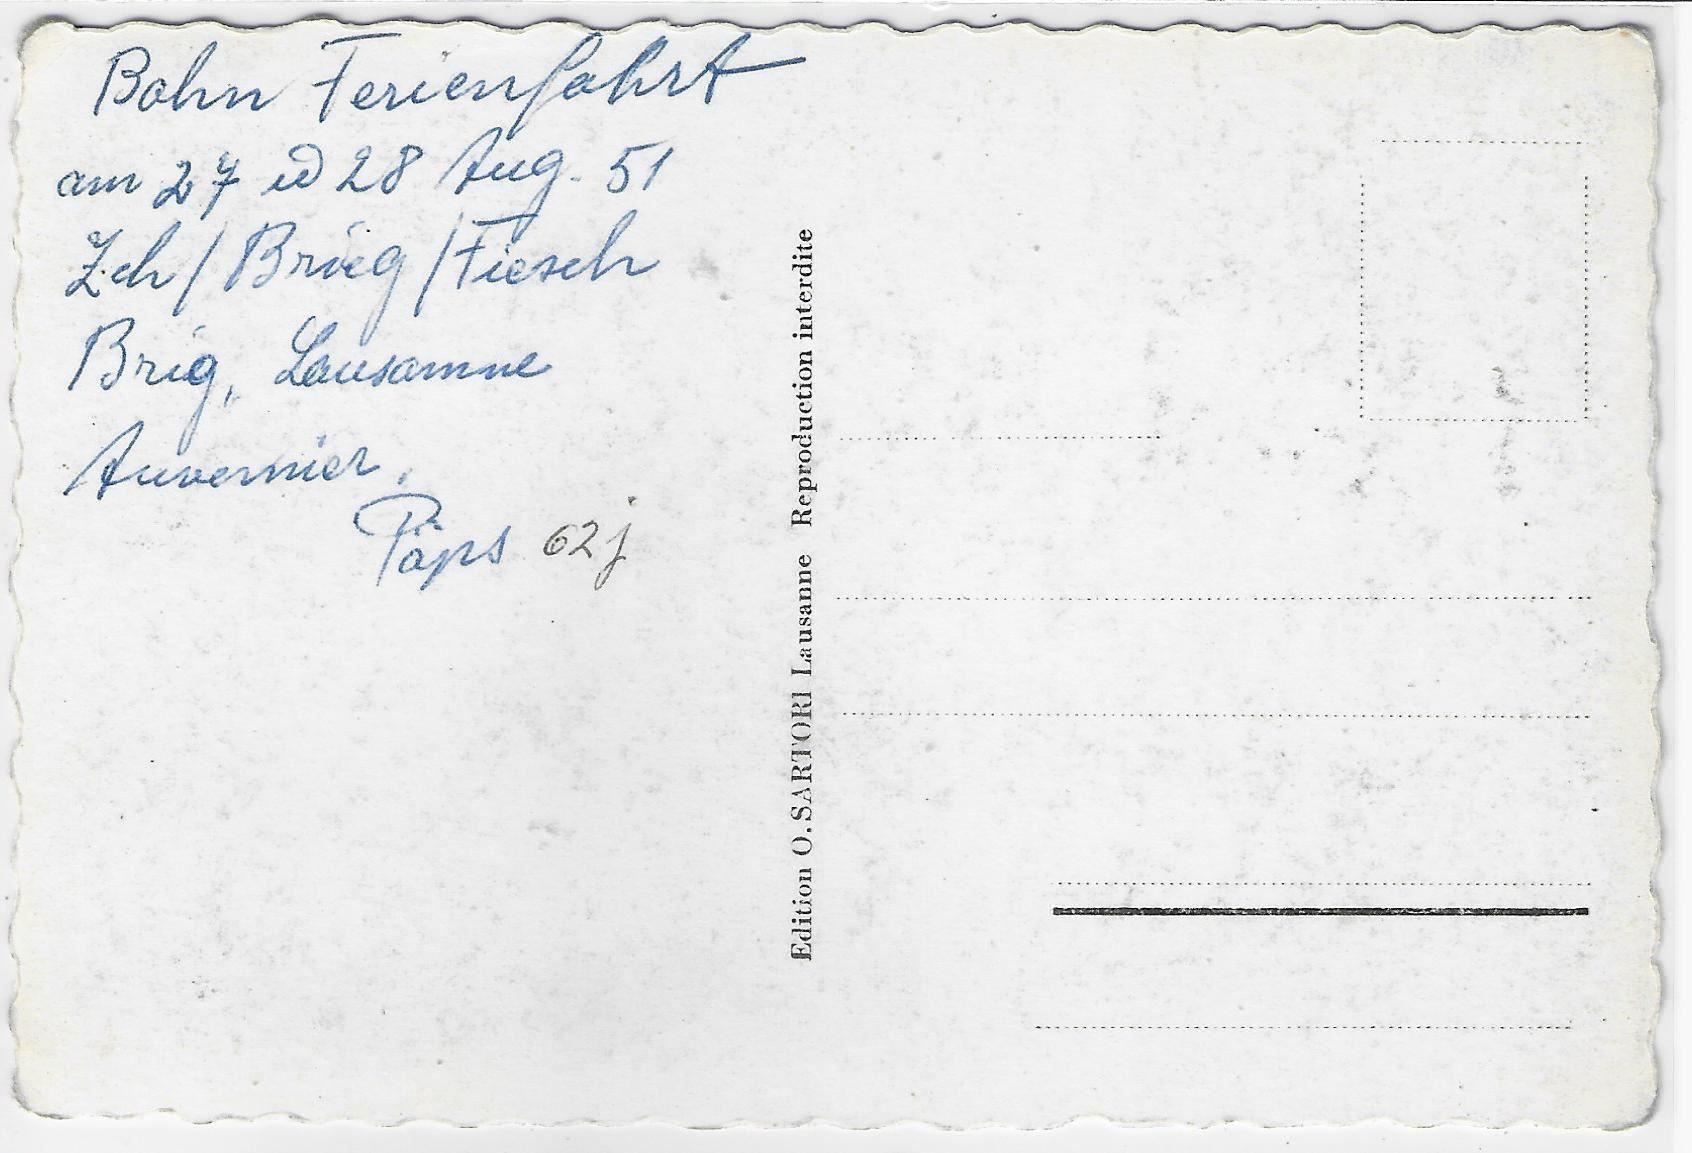 Bahn Ferienfahrt
am 27 u 28 Aug. 51
Zch / Brieg / Fiesch
Brig, Lausanne
Auvernier.
Päps 62 j
Edition O. SARTORI Lausanne Reproduction interdite